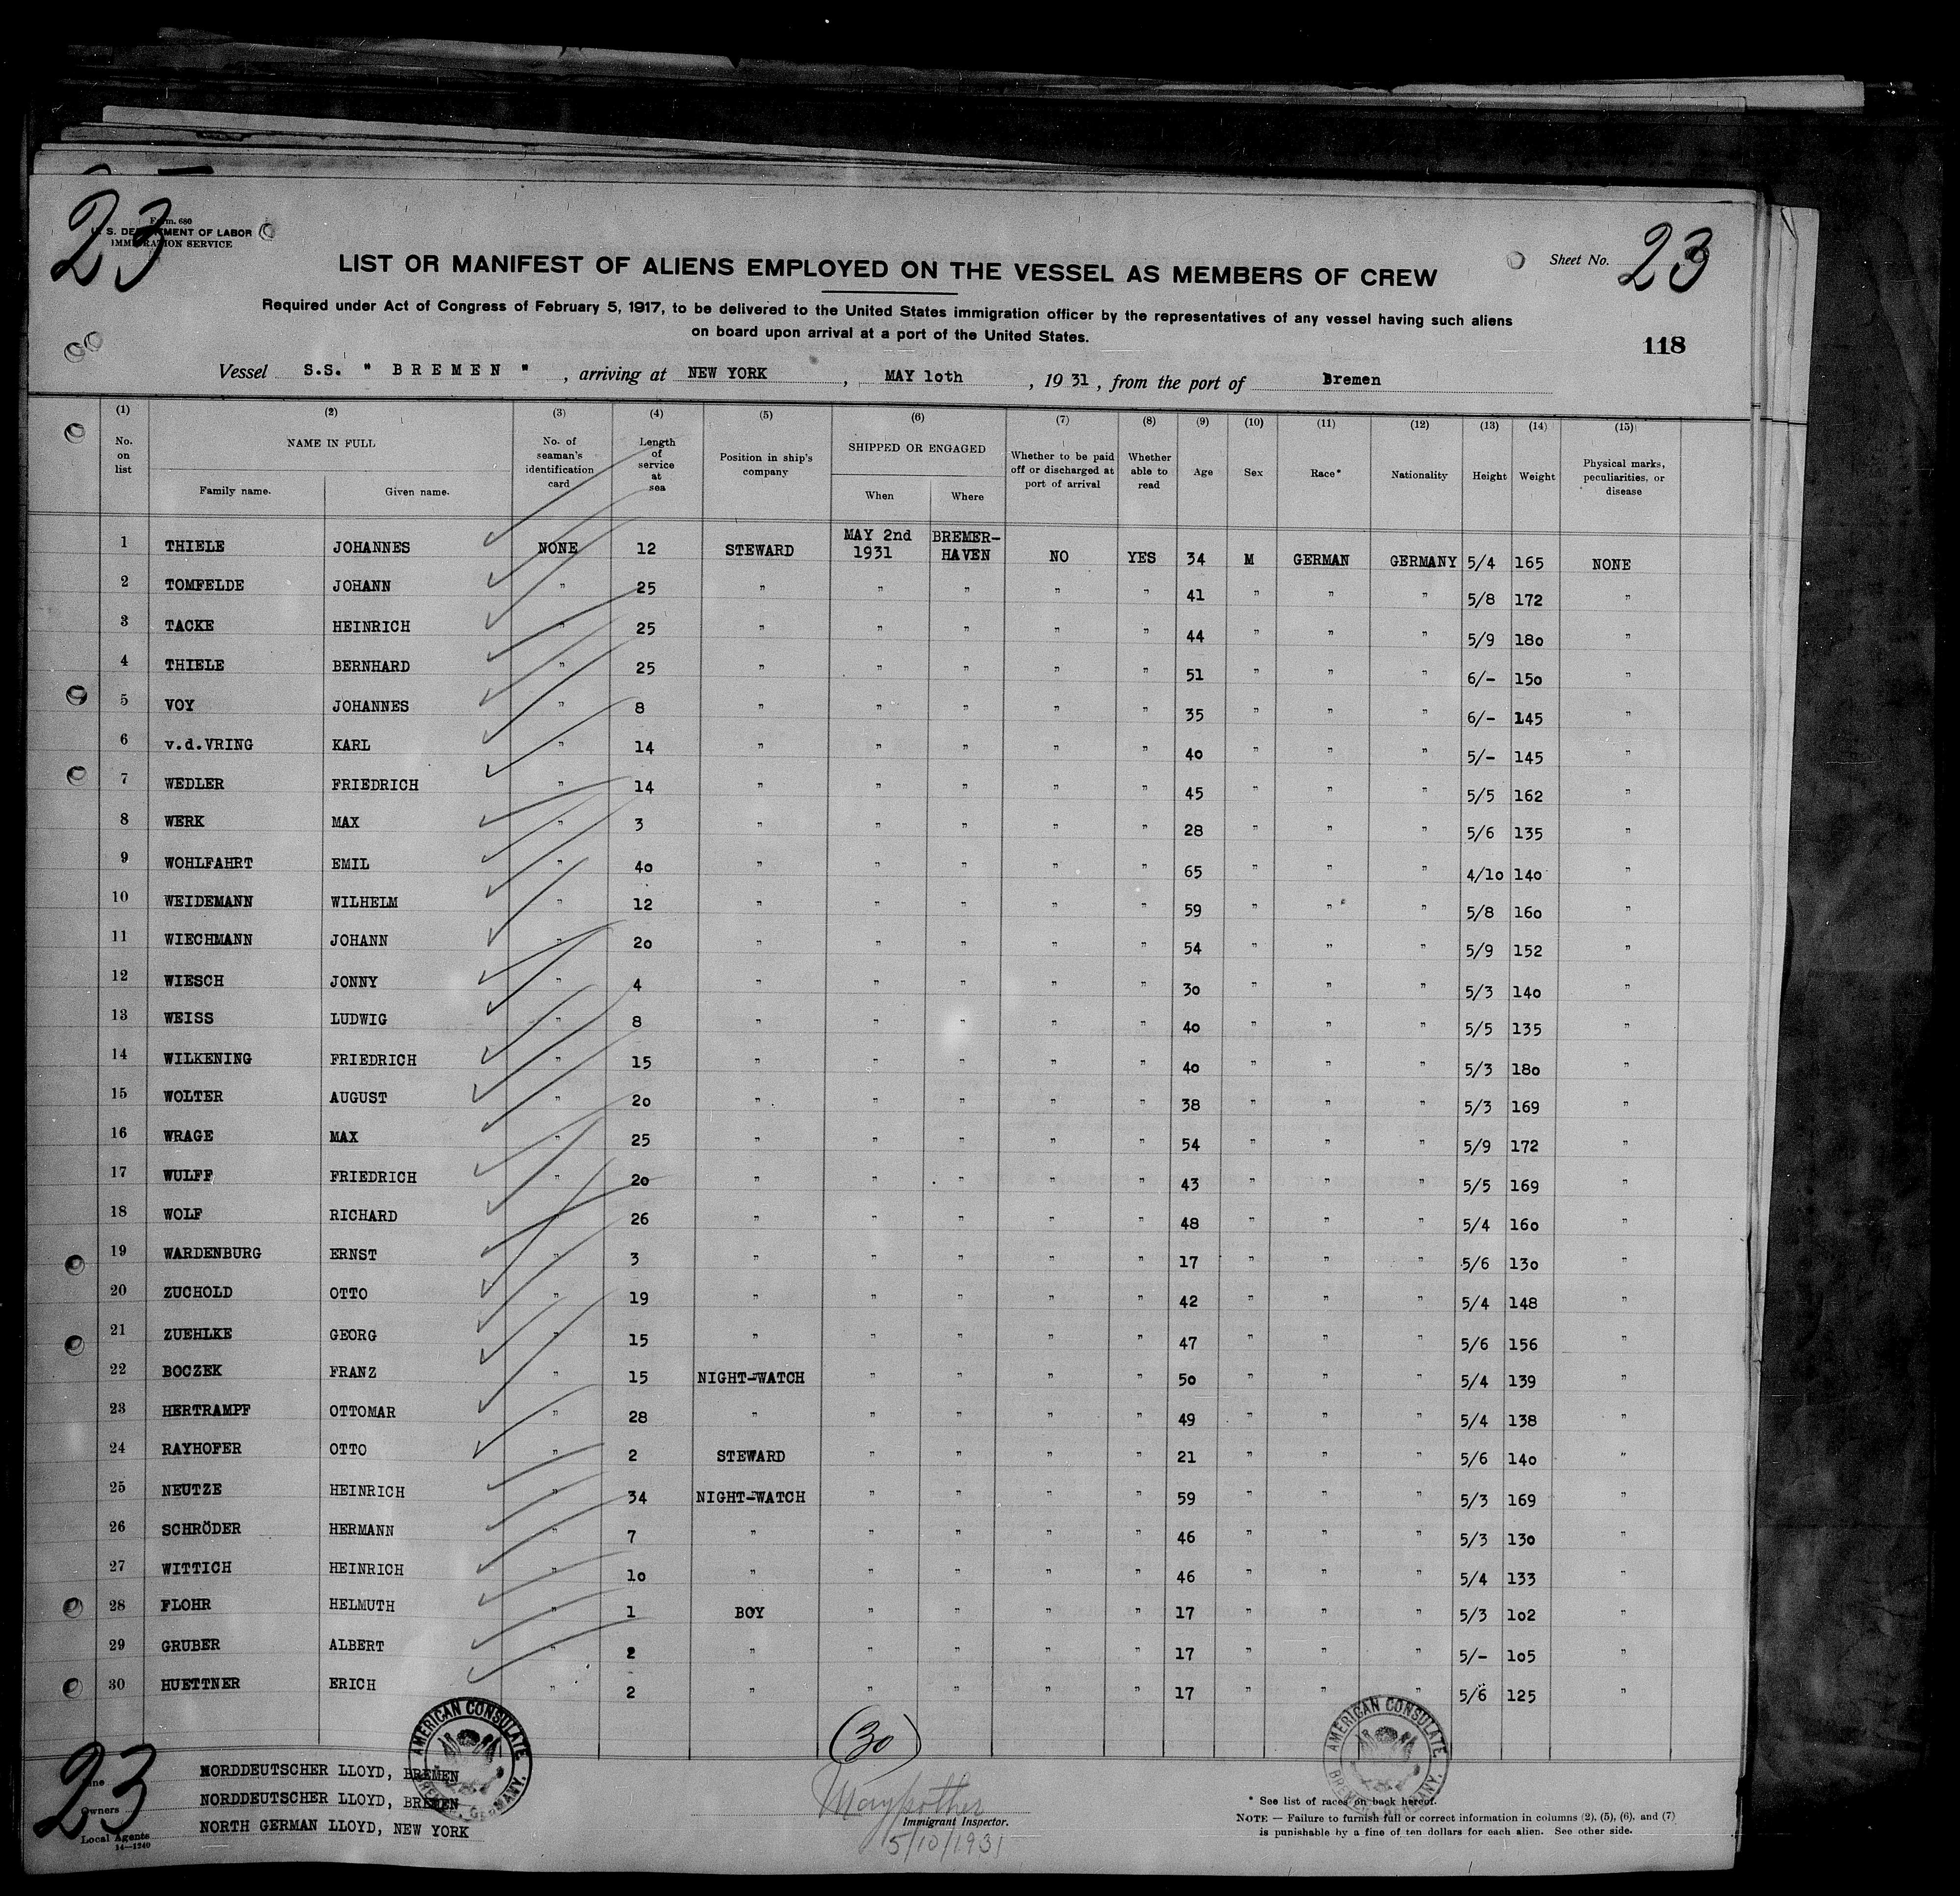 23
Form. 680
U. S. DEPARTMENT OF LABOR
IMMIGRATION SERVICE
Sheet No. 23
LIST OR MANIFEST OF ALIENS EMPLOYED ON THE VESSEL AS MEMBERS OF CREW
Required under Act of Congress of February 5, 1917, to be delivered to the United States immigration officer by the representatives of any vessel having such aliens
on board upon arrival at a port of the United States.
118
Vessel S.S. " BREMEN " , arriving at NEW YORK , MAY 1oth , 19 31 , from the port of Bremen
(1) (2) (3) (4) (5) (6) (7) (8) (9) (10) (11) (12) (13) (14) (15)
No. on list NAME IN FULL Family name. Given name. No. of seaman's identification card Length of service at sea Position in ship's company SHIPPED OR ENGAGED When Where Whether to be paid off or discharged at port of arrival Whether able to read Age Sex Race* Nationality Height Weight Physical marks, peculiarities, or disease
1 THIELE JOHANNES NONE 12 STEWARD MAY 2nd 1931 BREMER-HAVEN NO YES 34 M GERMAN GERMANY 5/4 165 NONE
2 TOMFELDE JOHANN " 25 " " " " " 41 " " " 5/8 172 "
3 TACKE HEINRICH " 25 " " " " " 44 " " " 5/9 18o "
4 THIELE BERNHARD " 25 " " " " " 51 " " " 6/- 15o "
5 VOY JOHANNES " 8 " " " " " 35 " " " 6/- 145 "
6 v.d.VRING KARL " 14 " " " " " 4o " " " 5/- 145 "
7 WEDLER FRIEDRICH " 14 " " " " " 45 " " " 5/5 162 "
8 WERK MAX " 3 " " " " " 28 " " " 5/6 135 "
9 WOHLFAHRT EMIL " 4o " " " " " 65 " " " 4/1o 14o "
10 WEIDEMANN WILHELM " 12 " " " " " 59 " " " 5/8 16o "
11 WIECHMANN JOHANN " 2o " " " " " 54 " " " 5/9 152 "
12 WIESCH JONNY " 4 " " " " " 3o " " " 5/3 14o "
13 WEISS LUDWIG " 8 " " " " " 4o " " " 5/5 135 "
14 WILKENING FRIEDRICH " 15 " " " " " 4o " " " 5/3 18o "
15 WOLTER AUGUST " 2o " " " " " 38 " " " 5/3 169 "
16 WRAGE MAX " 25 " " " " " 54 " " " 5/9 172 "
17 WULFF FRIEDRICH " 2o " " " " " 43 " " " 5/5 169 "
18 WOLF RICHARD " 26 " " " " " 48 " " " 5/4 16o "
19 WARDENBURG ERNST " 3 " " " " " 17 " " " 5/6 13o "
20 ZUCHOLD OTTO " 19 " " " " " 42 " " " 5/4 148 "
21 ZUEHLKE GEORG " 15 " " " " " 47 " " " 5/6 156 "
22 BOCZEK FRANZ " 15 NIGHT-WATCH " " " " 5o " " " 5/4 139 "
23 HERTRAMPF OTTOMAR " 28 " " " " " 49 " " " 5/4 138 "
24 RAYHOFER OTTO " 2 STEWARD " " " " 21 " " " 5/6 14o "
25 NEUTZE HEINRICH " 34 NIGHT-WATCH " " " " 59 " " " 5/3 169 "
26 SCHRÖDER HERMANN " 7 " " " " " 46 " " " 5/3 13o "
27 WITTICH HEINRICH " 1o " " " " " 46 " " " 5/4 133 "
28 FLOHR HELMUTH " 1 BOY " " " " 17 " " " 5/3 1o2 "
29 GRUBER ALBERT " 2 " " " " " 17 " " " 5/- 1o5 "
30 HUETTNER ERICH " 2 " " " " " 17 " " " 5/6 125 "
(30)
AMERICAN CONSULATE, BREMEN, GERMANY.
AMERICAN CONSULATE, BREMEN, GERMANY.
23
Line NORDDEUTSCHER LLOYD, BREMEN
Owners NORDDEUTSCHER LLOYD, BREMEN
Local Agents NORTH GERMAN LLOYD, NEW YORK
14—1240
Immigrant Inspector.
5/10/1931
* See list of races on back hereof.
NOTE — Failure to furnish full or correct information in columns (2), (5), (6), and (7)
is punishable by a fine of ten dollars for each alien. See other side.